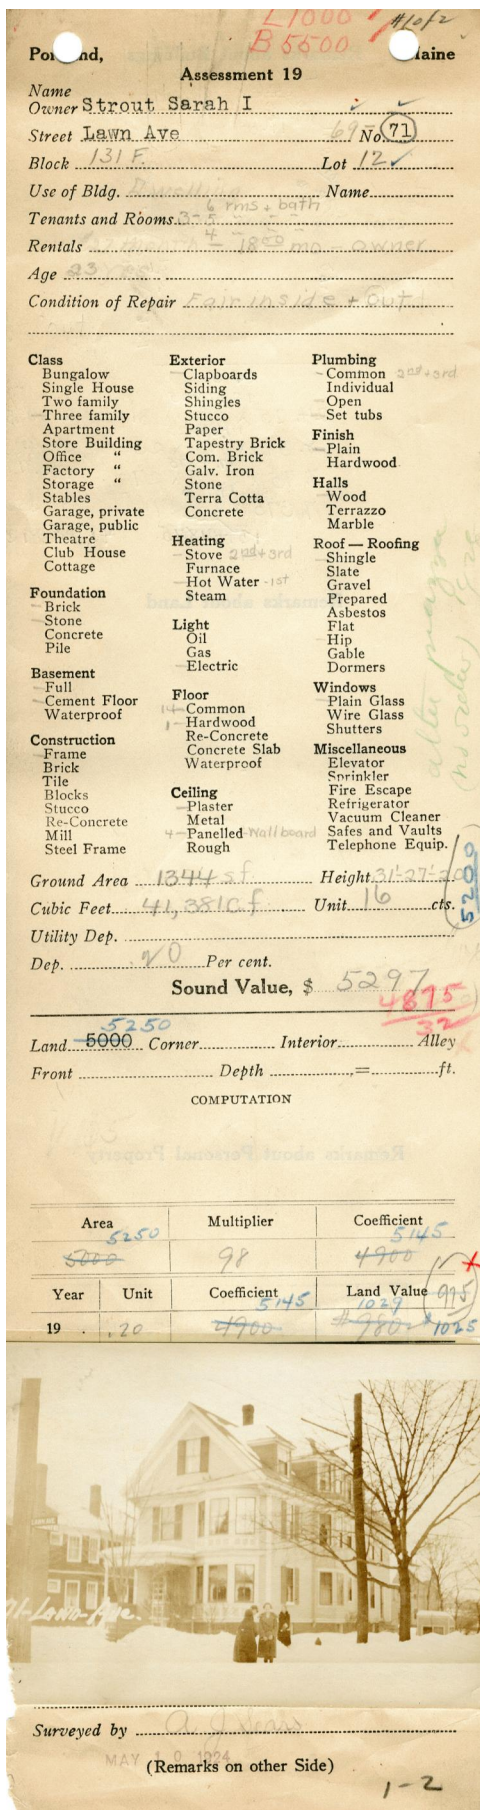 L 1000 #1 of 2
B 5500
Portland, Maine
Assessment 19
Name
Owner Strout Sarah I
Street Lawn Ave 69 No. 71
Block 131 F. Lot 12
Use of Bldg. Dwelling Name
6 rms + bath
Tenants and Rooms 3-5 " - "
4
Rentals 18.00 mo - owner
Age 23 yrs
Condition of Repair Fair inside + out
Class
Bungalow
Single House
Two family
Three family
Apartment
Store Building
Office "
Factory "
Storage "
Stables
Garage, private
Garage, public
Theatre
Club House
Cottage
Foundation
Brick
Stone
Concrete
Pile
Basement
Full
Cement Floor
Waterproof
Construction
Frame
Brick
Tile
Blocks
Stucco
Re-Concrete
Mill
Steel Frame
Exterior
Clapboards
Siding
Shingles
Stucco
Paper
Tapestry Brick
Com. Brick
Galv. Iron
Stone
Terra Cotta
Concrete
Heating
Stove 2nd + 3rd
Furnace
Hot Water - 1st
Steam
Light
Oil
Gas
Electric
Floor
14 - Common
1 - Hardwood
Re-Concrete
Concrete Slab
Waterproof
Ceiling
Plaster
Metal
4 - Panelled - Wall board
Rough
Plumbing
Common 2nd + 3rd
Individual
Open
Set tubs
Finish
Plain
Hardwood
Halls
Wood
Terrazzo
Marble
Roof — Roofing
Shingle
Slate
Gravel
Prepared
Asbestos
Flat
Hip
Gable
Dormers
Windows
Plain Glass
Wire Glass
Shutters
Miscellaneous
Elevator
Sprinkler
Fire Escape
Refrigerator
Vacuum Cleaner
Safes and Vaults
Telephone Equip.
5200
Ground Area 1344 s.f. Height 31'-27'-20
Cubic Feet 41,381 c.f. Unit 16 cts.
Utility Dep.
Dep. 20 Per cent.
Sound Value, $ 5297
4875
32
5250
Land 5000 Corner Interior Alley
Front Depth = ft.
COMPUTATION
Area Multiplier Coefficient
5250 5145
5000 98 4900
Year Unit Coefficient Land Value 975
5145 1029
19 .20 4900 $980 $1025
71-Lawn-Ave.
Surveyed by
MAY 10 1924
(Remarks on other Side)
1-2